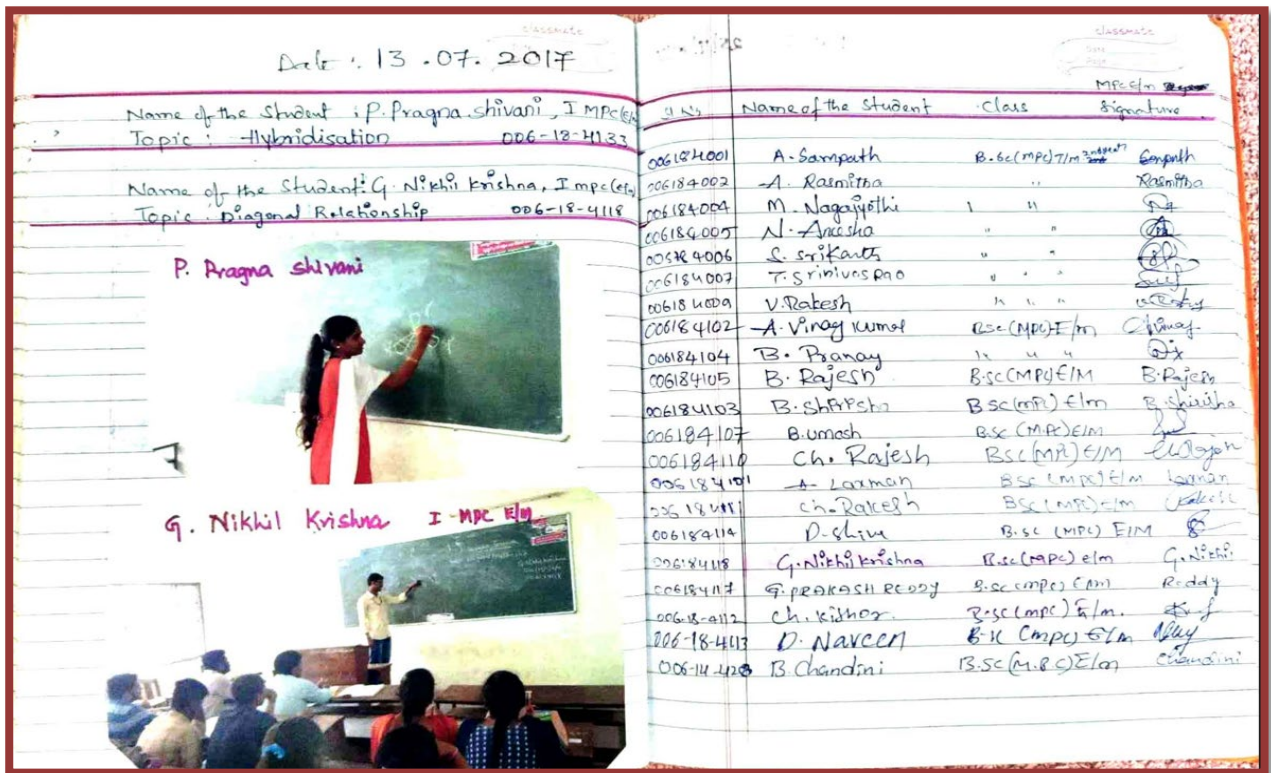 classmate
Date : 13.07.2017
Name of the Student : P. Pragna Shivani, I MPC(E/m
Topic : Hybridisation 006-18-4133
Name of the Student : G. Nikhil Krishna, I mpc(e/m)
Topic : Diagonal Relationship 006-18-4118
P. Pragna Shivani
G. Nikhil Krishna I MPC E/m
classmate
Date
Page
MPC E/m
Name of the Student Class Signature
006184001 A. Sampath B.Sc(MPC) T/m Sampath
006184002 A. Rasmitha " Rasmitha
006184004 M. Nagajyothi "
006184005 N. Aneesha " "
006184006 S. Srikanth " "
006184007 T. Srinivas Rao " " "
006184009 V. Rakesh " " "
006184102 A. Vinay Kumar BSc(MPC) E/m
006184104 B. Pranay " " "
006184105 B. Rajesh B.SC(MPC) E/M B. Rajesh
006184103 B. Shirisha BSC(MPC) E/m B. Shirisha
006184107 B. Umesh B.SC (MPC) E/M
006184110 Ch. Rajesh BSC(MPC) E/M
006184101 A. Laxman BSC (MPC) E/m Laxman
Ch. Rakesh BSC(MPC)E/m Rakesh
006184114 D. Shiva B.SC (MPC) E/M
006184118 G. Nikhil Krishna B.Sc(MPC) e/m G. Nikhi
006184117 G. PRAKASH REDDY B.SC (MPC) E/M Reddy
006-18-4112 Ch. Kishor. B.SC (MPC) E/m.
006-18-4113 D. Naveen B.SC (MPC) E/m
B. Chandini B.SC (M.P.C) E/m Chandini